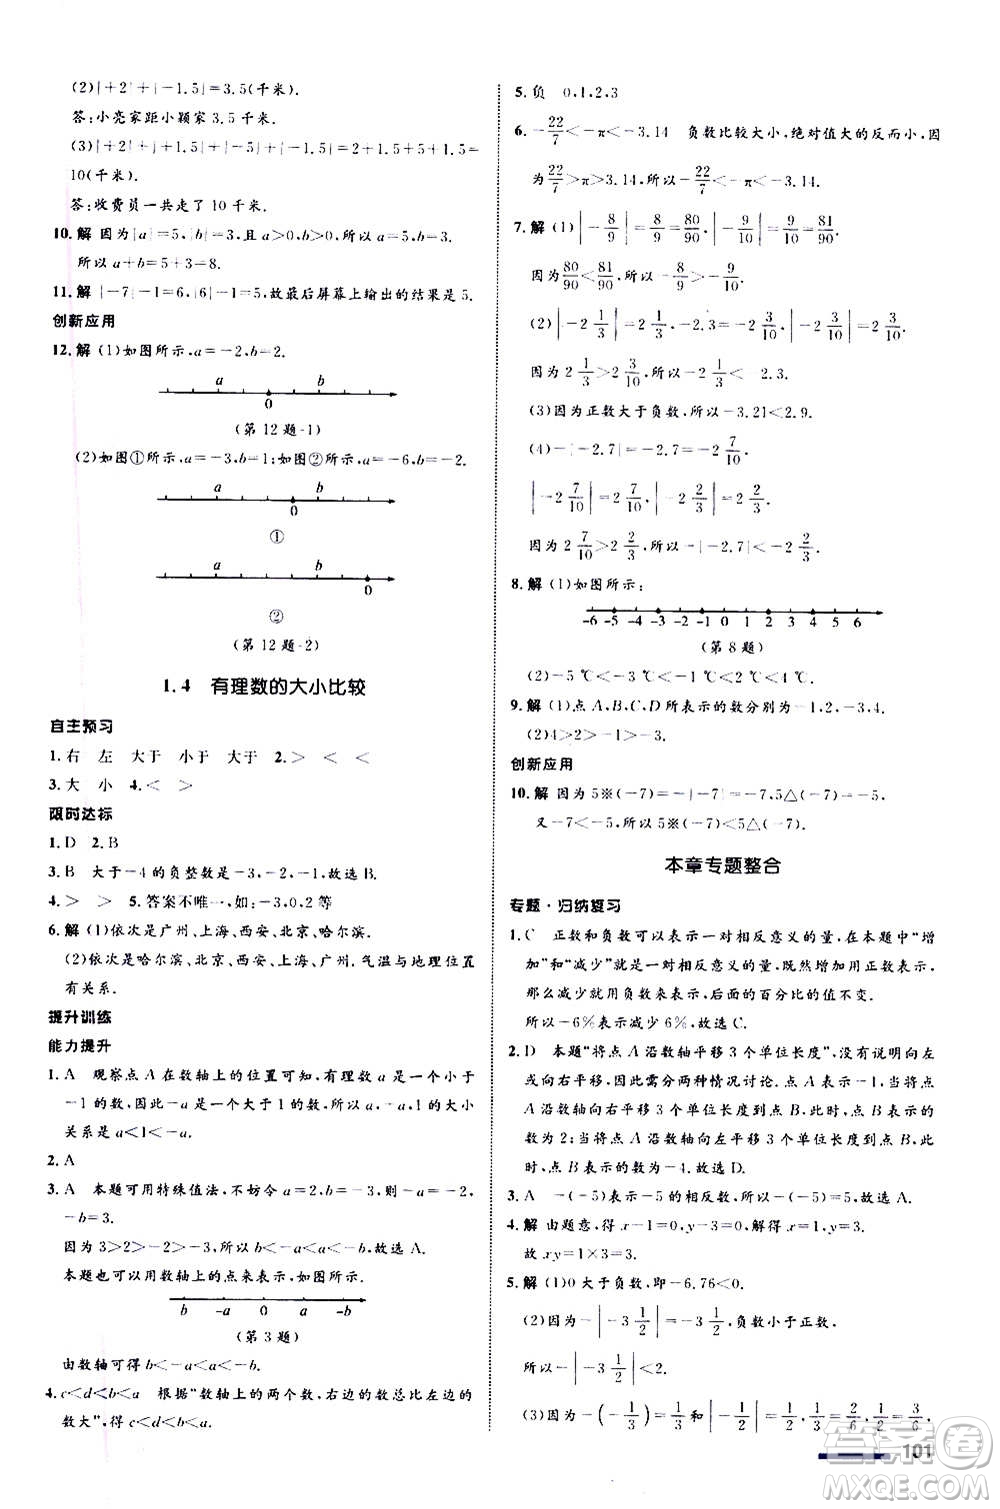 (2)|+2|+|-1.5|=3.5(千米).
答:小亮家距小颖家3.5千米.
(3)|+2|+|+1.5|+|-5|+|-1.5|=2+1.5+5+1.5=
10(千米).
答:收费员一共走了10千米.
10.解 因为|a|=5,|b|=3,且a>0,b>0,所以a=5,b=3.
所以a+b=5+3=8.
11.解 |-7|-1=6,|6|-1=5,故最后屏幕上输出的结果是5.
创新应用
12.解 (1)如图所示,a=-2,b=2.
a b
0
(第12题-1)
(2)如图①所示,a=-3,b=1;如图②所示,a=-6,b=-2.
a b
0
①
a b
0
②
(第12题-2)
1.4 有理数的大小比较
自主预习
1.右 左 大于 小于 大于 2.> < <
3.大 小 4.< >
限时达标
1.D 2.B
3.B 大于-4的负整数有-3,-2,-1,共3个.
4.> > 5.答案不唯一,如:-3,0,2等
6.解 (1)依次是广州、上海、西安、北京、哈尔滨.
(2)依次是哈尔滨、北京、西安、上海、广州.气温与地理位置
有关系.
提升训练
能力提升
1.A 观察点A在数轴上的位置可知,有理数a是一个小于
-1的数,因此-a是一个大于1的数,所以a,-a,1的大小
关系是a<1<-a.
2.A
3.A 本题可用特殊值法,不妨令a=2,b=-3,则-a=-2,
-b=3.
因为3>2>-2>-3,所以b<-a<a<-b.故选A.
本题也可以用数轴上的点来表示,如图所示.
b -a 0 a -b
(第3题)
由数轴可得b<-a<a<-b.
4.c<d<b<a 根据“数轴上的两个数,右边的数总比左边的
数大”,得c<d<b<a.
5.负 0,1,2,3
6.-22/7<-π<-3.14 负数比较大小,绝对值大的反而小,因
为22/7>π>3.14,所以-22/7<-π<-3.14.
7.解 (1)|-8/9|=8/9=80/90,|-9/10|=9/10=81/90.
因为80/90<81/90,所以-8/9>-9/10.
(2)|-2 1/3|=2 1/3,|-2.3|=|-2 3/10|=2 3/10.
因为2 1/3>2 3/10,所以-2 1/3< 2.3.
(3)因为正数大于负数,所以-3.21<2.9.
(4)-|-2.7|=-2.7=-2 7/10,
|-2 7/10|=2 7/10,|-2 2/3|=2 2/3.
因为2 7/10>2 2/3,所以-|-2.7|<-2 2/3.
8.解 (1)如图所示:
-6 -5 -4 -3 -2 -1 0 1 2 3 4 5 6
(第8题)
(2)-5 ℃<-4 ℃<-1 ℃<0 ℃<2 ℃<4 ℃.
9.解 (1)点A,B,C,D所表示的数分别为-1,2,-3,4.
(2)4>2>-1>-3.
创新应用
10.解 因为5※(-7)=-|-7|=-7,5△(-7)=-5.
又-7<-5,所以5※(-7)<5△(-7).
本章专题整合
专题·归纳复习
1.C 正数和负数可以表示一对相反意义的量,在本题中“增
加”和“减少”就是一对相反意义的量,既然增加用正数表示,
那么减少就用负数来表示,后面的百分比的值不变.
所以-6%表示减少6%,故选C.
2.D 本题“将点A沿数轴平移3个单位长度”,没有说明向左
或向右平移,因此需分两种情况讨论.点A表示的数为-1,
点A沿数轴向右平移3个单位长度到点B,此时点B表示的
数为2;当点A沿数轴向左平移3个单位长度到点B,此
时,点B表示的数为-4.故选D.
3.A -(-5)表示-5的相反数,所以-(-5)=5,故选A.
4.解 由题意,得x-1=0,y-3=0,解得x=1,y=3.
故xy=1×3=3.
5.解 (1)0大于负数,即-6.76<0.
(2)因为-|-3 1/2|=-3 1/2,负数小于正数,
所以-|-3 1/2|<2.
(3)因为-(-1/3)=1/3和|-1/2|=1/2,1/3=2/6,1/2=3/6,
101
答案圈
MXQE.COM